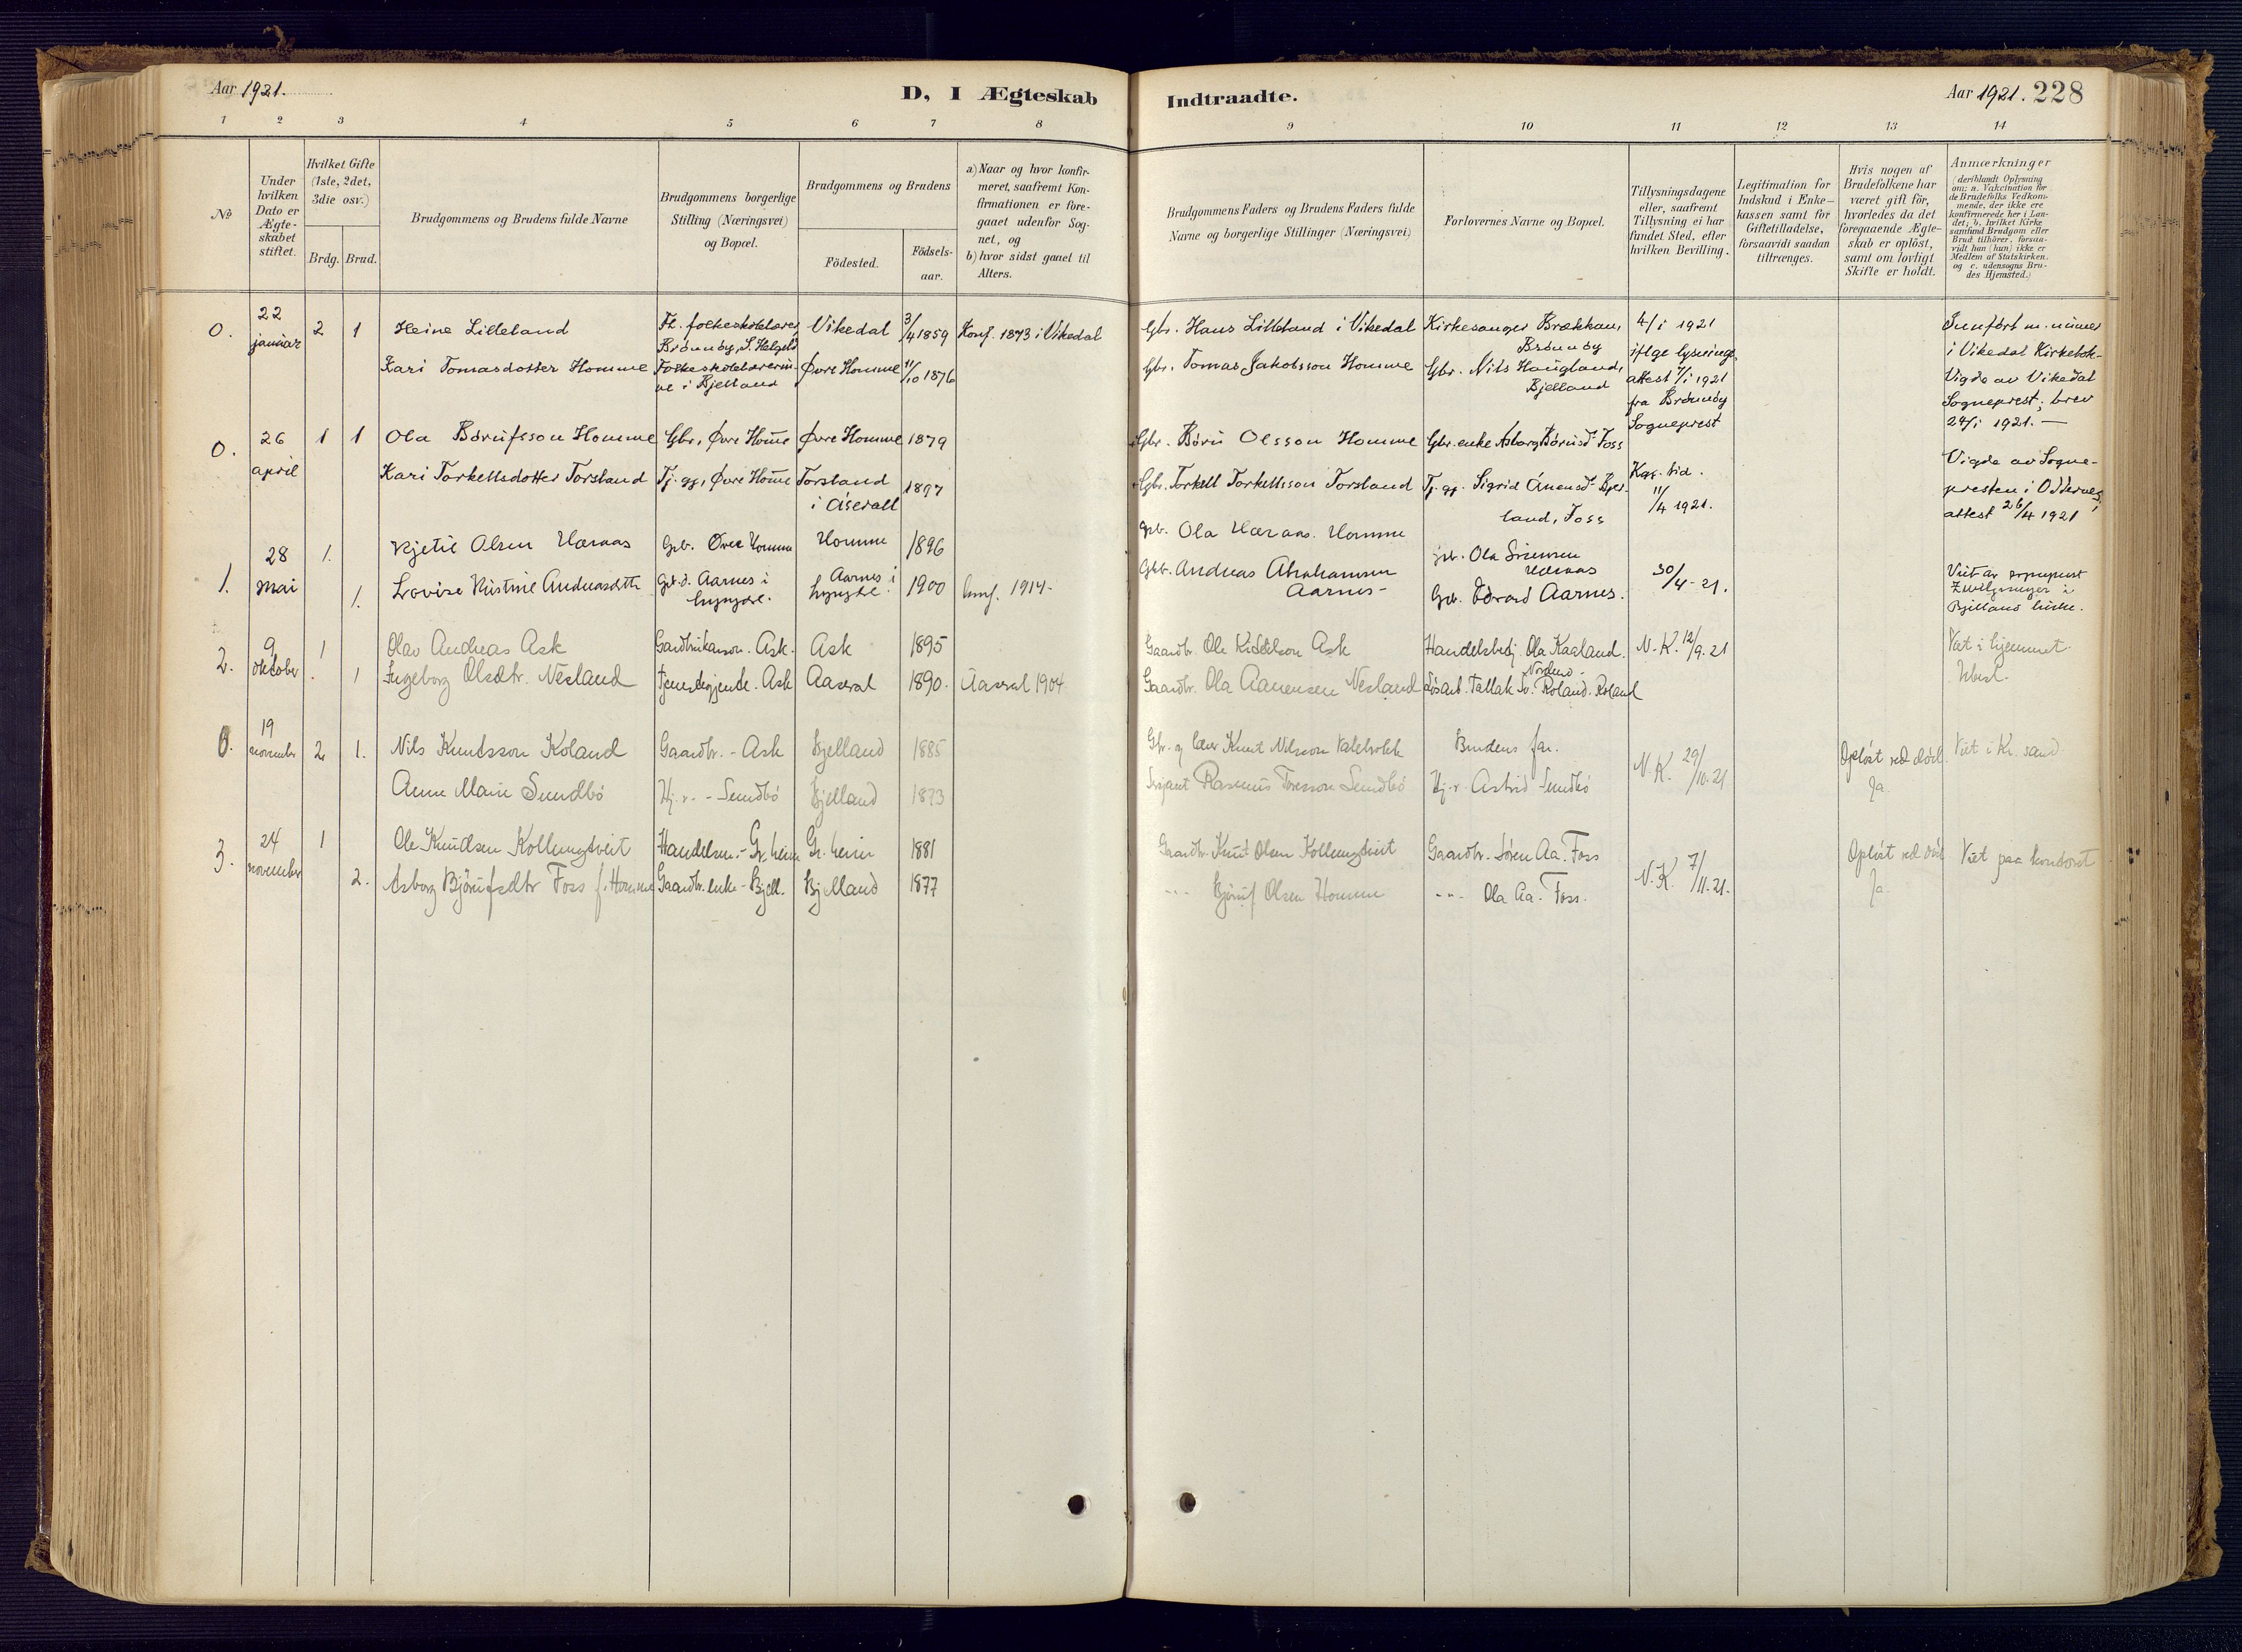 Aar 1921.
D, I Ægteskab
Indtraadte.
Aar 1921. 228
1 2 3 4 5 6 7 8 9 10 11 12 13 14
No
Under
hvilken
Dato er
Ægte-
skabet
stiftet.
Hvilket Gifte
(1ste, 2det,
3die osv.)
Brdg. Brud.
Brudgommens og Brudens fulde Navne
Brudgommens borgerlige
Stilling (Næringsvei)
og Bopæl.
Brudgommens og Brudens
Födested.
Födsels-
aar.
a) Naar og hvor konfir-
meret, saafremt Kon-
firmationen er fore-
gaaet udenfor Sog-
net, og
b) hvor sidst gaaet til
Alters.
Brudgommens Faders og Brudens Faders fulde
Navne og borgerlige Stillinger (Næringsvei)
Forlovernes Navne og Bopæl.
Tillysningsdagene
eller, saafremt
Tillysning ei har
fundet Sted, efter
hvilken Bevilling.
Legitimation for
Indskud i Enke-
kassen samt for
Giftetilladelse,
forsaavidt saadan
tiltrænges.
Hvis nogen af
Brudefolkene har
været gift för,
hvorledes da det
foregaaende Ægte-
skab er oplöst,
samt om lovligt
Skifte er holdt.
Anmærkninger
(deriblandt Oplysning
om: a. Vakcination for
de Brudefolks Vedkom-
mende, der ikke ere
konfirmerede her i Lan-
det; b. hvilket Kirke
samfund Brudgom eller
Brud tilhörer, forsaa-
vidt han (hun) ikke er
Medlem af Statskirken,
og c. udensogns Bru-
des Hjemsted.)
0.
22
januar
2 1
Heine Lilleland
Fh. folkeskolelærer,
Brönnöy, S. Helgeld
Vikedal
3/4 1859
Konf. 1873 i Vikedal
Gbr. Hans Lilleland i Vikedal
Kirkesanger Brækkan,
Brönnöy
4/1 1921
iflge lysnings-
attest 7/1 1921
fra Brönnöy
Sogneprest
Kari Tomasdotter Homme
Folkeskolelærerin-
ne i Bjelland
Øvre Homme
11/10 1876
Gbr. Tomas Jakobsson Homme
Gbr. Nils Haugland,
Bjelland
Innført m. numer
i Vikedal Kirkebok-
Vigde av Vikedal
Sogneprest; brev
24/1 1921. —
0.
26
april
1 1
Ola Børufsson Homme
Gbr., Øvre Home
Øvre Homme
1879
Gbr. Böru Olsson Homme
Gbr. enke Asborg Börusd. Foss
Kari Torkellsdotter Torsland
Tj. gj., Øvre Home
Torsland
i Åserall
1897
Gbr. Torkell Torkellsson Torsland
Tj. gj. Sigrid Ånensd. Bjel-
land, Foss
11/4 1921.
Vigde av Sogne-
presten i Oddernes;
attest 26/4 1921
1.
28
mai
1.
Kjetil Olsen Hæraas
Grb. Övre Homme
Homme
1896
Grb. Ola Hæraas. Homme
Hæraas
1.
Lovise Kristine Andreasdtr
Aarnes i
Lyngdal.
Aarnes i
Lyngdal.
1900
konf. 1914.
Gbr. Andreas Abrahamsen
Aarnes
Grb. Edvard Aarnes.
30/4-21.
Bjelland kirke.
2.
9
oktober
1
Olav Andreas Ask
Ask.
Ask
1895
Gaardbr. Ole Kiddelson Ask
Handelsbetj. Ola Kaaland.
Nordmo.
N.K. 12/9.21
Viet i hjemmet.
1
Ingeborg Olsdtr. Nesland
tjenestegjende. Ask
Aaseral
1890.
Aaseral 1904
Gaardbr. Ola Aanensen Nesland
Løsarb. Tallak Roland. Roland
0.
19
november
2 1.
Nils Knudsson Koland
Gaardbr. - Ask
Bjelland
1885
Gbr. og lærer Knut Nilsson
Brudens far.
N.K. 29/10.21
Opløst ved død.
Ja.
Viet i Kr. sand.
Anne Marie Sundbö
Hj.v. - Sundbö
Bjelland
1893
Sersjant Rasmus Toresson Sundbö
Hj.v. Astrid Sundbö
3.
24
november
1
Ole Knudsen Kollungtveit
Handelsm. - Gr. heim
Gr. heim
1881
Gaardbr. Knut Olsen Kollungtveit
Gaardbr. Sören Aa. Foss
N.K. 7/11.21.
Opløst ved død
Ja.
Viet paa kontoret
2.
Asborg Björufsdtr Foss f. Homme
Gaardbr. enke - Bjell.
Bjelland
1877
-"- Björuf Olsen Homme
-"- Ola Aa. Foss.